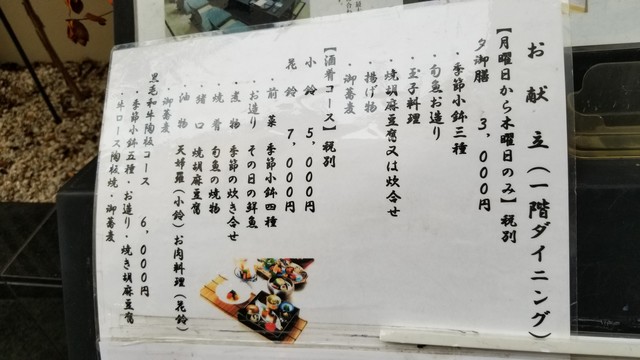 お献立（一階ダイニング）
【月曜日から木曜日のみ】税別
夕御膳 3,000円
・季節小鉢三種
・旬魚お造り
・玉子料理
・焼胡麻豆腐又は炊合せ
・揚げ物
・御蕎麦
【酒肴コース】税別
小鈴 5,000円
花鈴 7,000円
・前菜 季節小鉢四種
・お造り その日の鮮魚
・煮物 季節の炊き合せ
・焼肴 旬魚の焼物
・猪口 焼胡麻豆腐
・油物 天婦羅（小鈴）お肉料理（花鈴）
・御蕎麦
黒毛和牛陶板コース 6,000円
・季節小鉢五種・お造り・焼き胡麻豆腐
・牛ロース陶板焼・御蕎麦